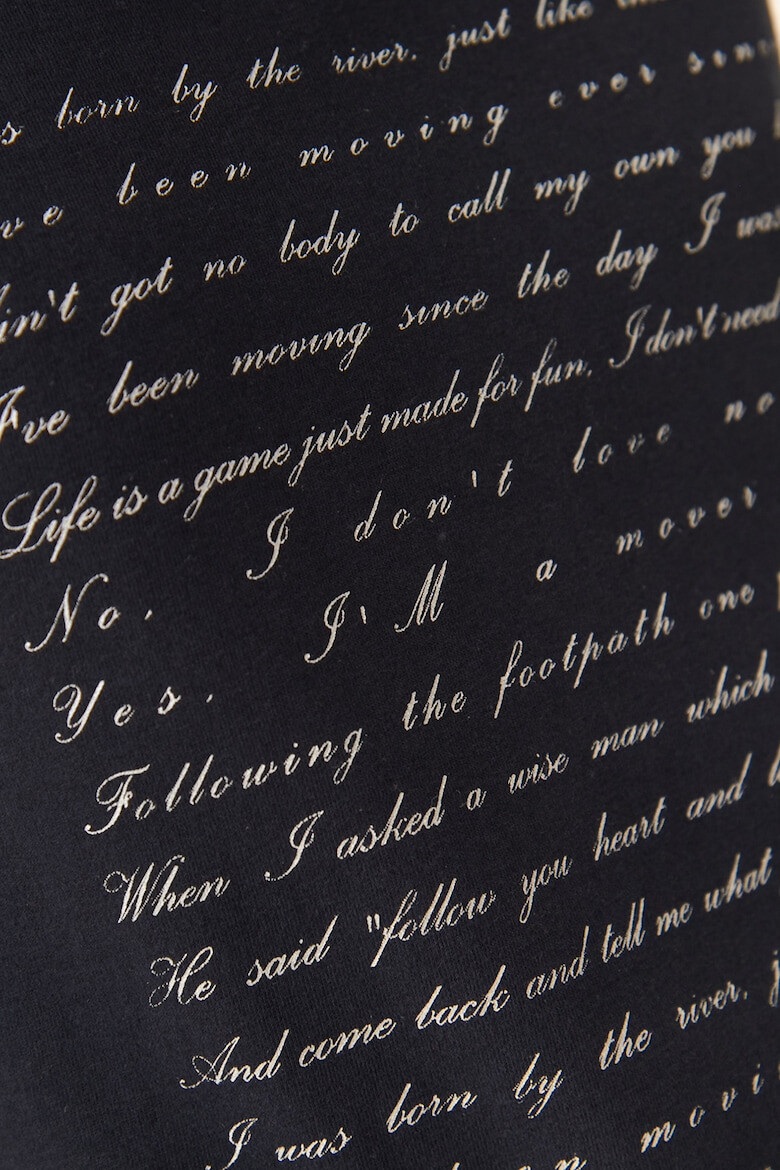 born by the river. just like
been moving ever
got no body to call my own you
I've been moving since the day I was
Life is a game just made for fun. I don't need
No. I don't love no
Yes. I'M a mover
Following the footpath one
When I asked a wise man which
He said "follow you heart and
And come back and tell me what
I was born by the river.